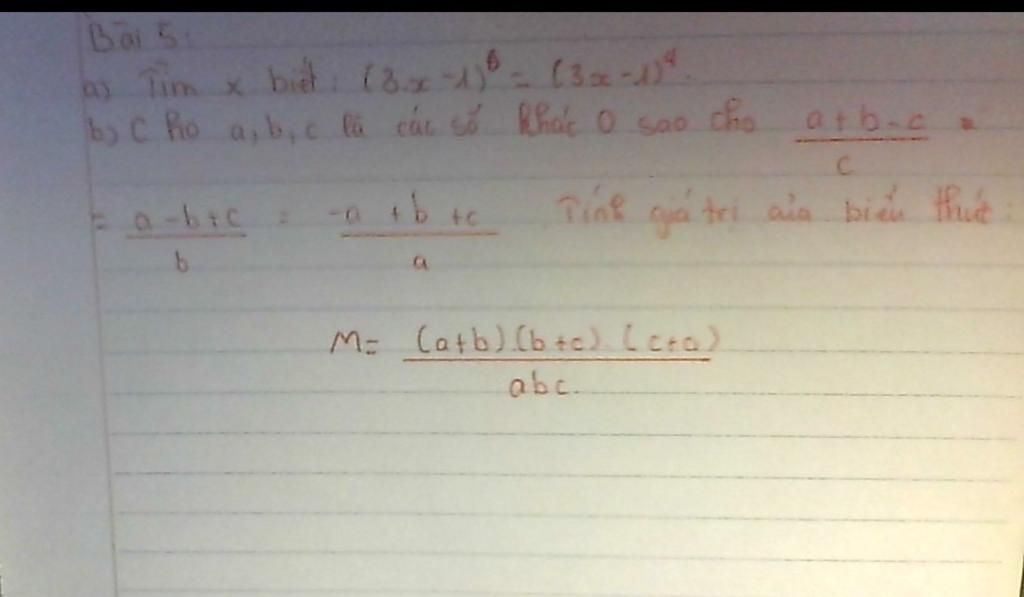 Bài 5:
a) Tìm x biết: (3.x -1)⁶ = (3x -1)⁴.
b) Cho a, b, c là các số khác 0 sao cho \frac{a+b-c}{c} =
= \frac{a-b+c}{b} = \frac{-a+b+c}{a} Tính giá trị của biểu thức:
M= \frac{(a+b).(b+c).(c+a)}{abc.}